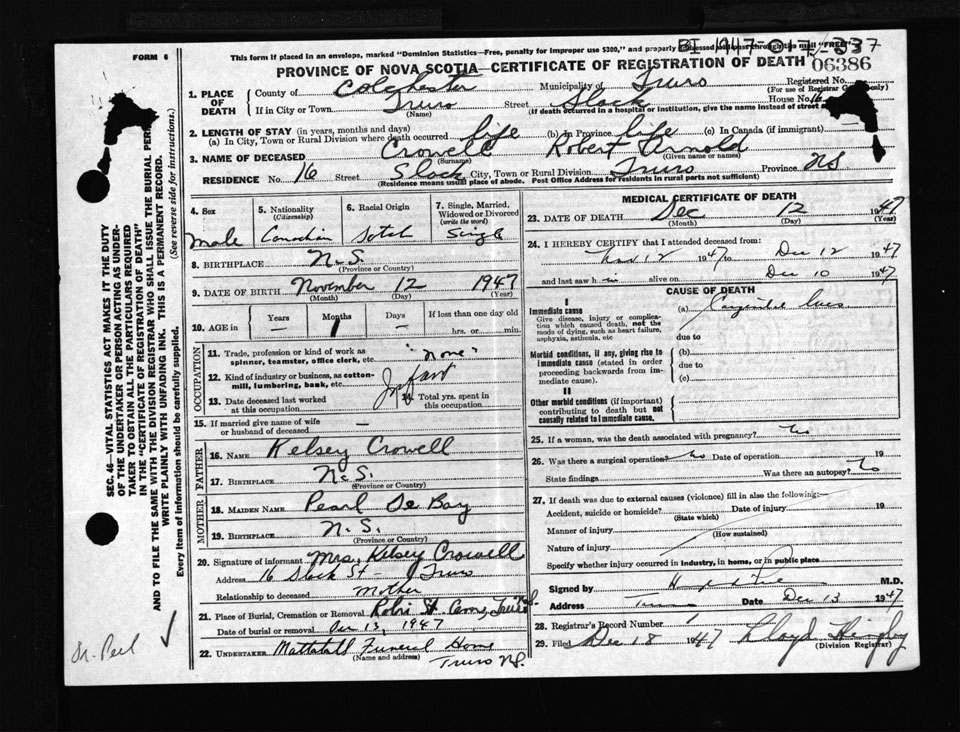 FORM 6
This form if placed in an envelope, marked "Dominion Statistics—Free, penalty for improper use $300," and properly addressed through the mail "FREE"
BI 1947-017-337
PROVINCE OF NOVA SCOTIA—CERTIFICATE OF REGISTRATION OF DEATH
06386
1. PLACE OF DEATH
County of Colchester Municipality of Truro Registered No.
(For use of Registrar General only)
If in City or Town Truro Street Slack House No. 16
(Name) (If death occurred in a hospital or institution, give the name instead of street
2. LENGTH OF STAY (in years, months and days)
(a) In City, Town or Rural Division where death occurred life (b) In Province life (c) In Canada (if immigrant)
3. NAME OF DECEASED Crowell Robert Arnold
(Surname) (Given name or names)
RESIDENCE No. 16 Street Slack City, Town or Rural Division Truro Province NS
(Residence means usual place of abode. Post Office Address for residents in rural parts not sufficient)
4. Sex
male
5. Nationality
(Citizenship)
Canadian
6. Racial Origin
Scotch
7. Single, Married, Widowed or Divorced
(write the word)
Single
8. BIRTHPLACE N.S.
(Province or Country)
9. DATE OF BIRTH November 12 1947
(Month) (Day) (Year)
10. AGE in
Years Months Days If less than one day old
— 1 — hrs. or min.
OCCUPATION
11. Trade, profession or kind of work as spinner, teamster, office clerk, etc. "none"
12. Kind of industry or business, as cotton-mill, lumbering, bank, etc. Infant
13. Date deceased last worked at this occupation
14. Total yrs. spent in this occupation
15. If married give name of wife or husband of deceased —
FATHER
16. NAME Kelsey Crowell
17. BIRTHPLACE N.S.
(Province or Country)
MOTHER
18. MAIDEN NAME Pearl De Bay
19. BIRTHPLACE N.S.
(Province or Country)
20. Signature of informant Mrs. Kelsey Crowell
Address 16 Slack St - Truro
Relationship to deceased Mother
21. Place of Burial, Cremation or Removal Robie St. Cem, Truro N.S.
Date of burial or removal Dec 13, 1947
22. UNDERTAKER Mattatall Funeral Home
(Name and address) Truro N.S.
MEDICAL CERTIFICATE OF DEATH
23. DATE OF DEATH Dec 12 1947
(Month) (Day) (Year)
24. I HEREBY CERTIFY that I attended deceased from:
Nov 12 1947 to Dec 12 1947
and last saw h im alive on Dec 10 1947
CAUSE OF DEATH
I
Immediate cause
Give disease, injury or complication which caused death, not the mode of dying, such as heart failure, asphyxia, asthenia, etc
(a) Congenital
due to
Morbid conditions, if any, giving rise to immediate cause (stated in order proceeding backwards from immediate cause).
(b)
due to
(c)
II
Other morbid conditions (if important) contributing to death but not causally related to immediate cause.
25. If a woman, was the death associated with pregnancy? No
26. Was there a surgical operation? No Date of operation 19
State findings Was there an autopsy? No
27. If death was due to external causes (violence) fill in also the following:—
Accident, suicide or homicide? Date of injury 19
(State which)
Manner of injury
(How sustained)
Nature of injury
Specify whether injury occurred in industry, in home, or in public place
Signed by M.D.
Address Truro Date Dec 13 1947
28. Registrar's Record Number 1
29. Filed Dec 18 1947 Lloyd
(Division Registrar)
SEC. 46—VITAL STATISTICS ACT MAKES IT THE DUTY
OF THE UNDERTAKER OR PERSON ACTING AS UNDER-
TAKER TO OBTAIN ALL THE PARTICULARS REQUIRED
IN THE "CERTIFICATE OF REGISTRATION OF DEATH"
AND TO FILE THE SAME WITH THE DIVISION REGISTRAR WHO SHALL ISSUE THE BURIAL PER
WRITE PLAINLY WITH UNFADING INK. THIS IS A PERMANENT RECORD.
Every item of information should be carefully supplied. (See reverse side for instructions.)
Dr. Peel